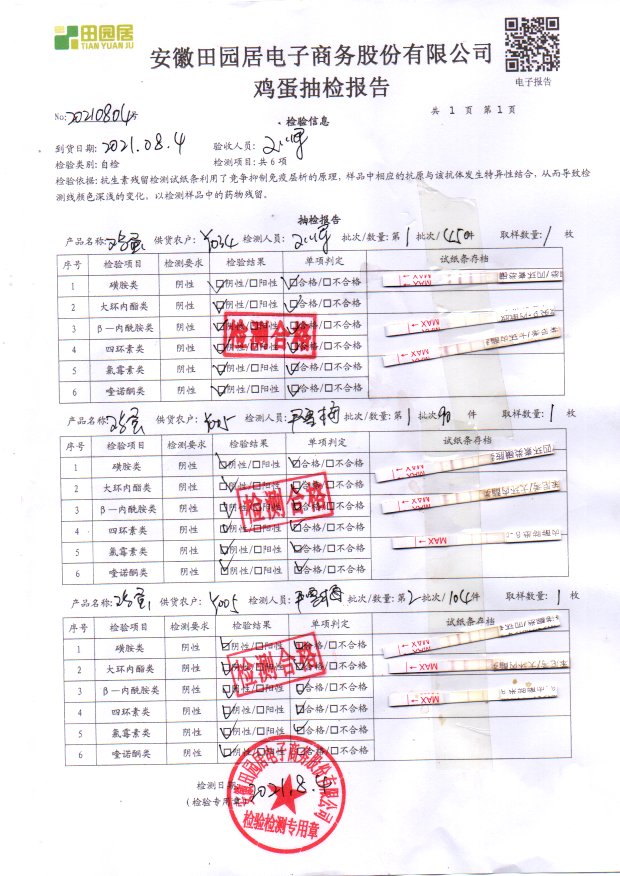 田园居
TIAN YUAN JU
安徽田园居电子商务股份有限公司
鸡蛋抽检报告
电子报告
No: 20210804号
共 1 页 第 1 页
检验信息
到货日期: 2021.08.4 验收人员:
检验类别: 自检 检测项目: 共 6 项
检验依据: 抗生素残留检测试纸条利用了竞争抑制免疫层析的原理, 样品中相应的抗原与该抗体发生特异性结合, 从而导致检
测线颜色深浅的变化, 以检测样品中的药物残留。
抽检报告
产品名称: 鸡蛋 供货农户: Y034 检测人员: 批次/数量: 第 1 批次/450件 取样数量: 1 枚
序号 检验项目 检测要求 检验结果 单项判定 试纸条存档
1 磺胺类 阴性 ☑阴性/□阳性 ☑合格/□不合格
2 大环内酯类 阴性 ☑阴性/□阳性 ☑合格/□不合格
3 β—内酰胺类 阴性 ☑阴性/□阳性 ☑合格/□不合格
4 四环素类 阴性 ☑阴性/□阳性 ☑合格/□不合格
5 氟霉素类 阴性 ☑阴性/□阳性 ☑合格/□不合格
6 喹诺酮类 阴性 ☑阴性/□阳性 ☑合格/□不合格
检测合格
MAX
MAX
MAX
产品名称: 鸡蛋 供货农户: Y005 检测人员: 批次/数量: 第 1 批次/90 件 取样数量: 1 枚
序号 检验项目 检测要求 检验结果 单项判定 试纸条存档
1 磺胺类 阴性 ☑阴性/□阳性 ☑合格/□不合格
2 大环内酯类 阴性 ☑阴性/□阳性 ☑合格/□不合格
3 β—内酰胺类 阴性 ☑阴性/□阳性 ☑合格/□不合格
4 四环素类 阴性 ☑阴性/□阳性 ☑合格/□不合格
5 氟霉素类 阴性 ☑阴性/□阳性 ☑合格/□不合格
6 喹诺酮类 阴性 ☑阴性/□阳性 ☑合格/□不合格
检测合格
MAX
MAX
MAX
产品名称: 鸡蛋 供货农户: Y005 检测人员: 批次/数量: 第 2 批次/104件 取样数量: 1 枚
序号 检验项目 检测要求 检验结果 单项判定 试纸条存档
1 磺胺类 阴性 ☑阴性/□阳性 ☑合格/□不合格
2 大环内酯类 阴性 ☑阴性/□阳性 ☑合格/□不合格
3 β—内酰胺类 阴性 ☑阴性/□阳性 ☑合格/□不合格
4 四环素类 阴性 ☑阴性/□阳性 ☑合格/□不合格
5 氟霉素类 阴性 ☑阴性/□阳性 ☑合格/□不合格
6 喹诺酮类 阴性 ☑阴性/□阳性 ☑合格/□不合格
检测合格
MAX
MAX
MAX
检测日期: 2021.8.4
(检验专用章)
安徽田园居电子商务股份有限公司
检验检测专用章